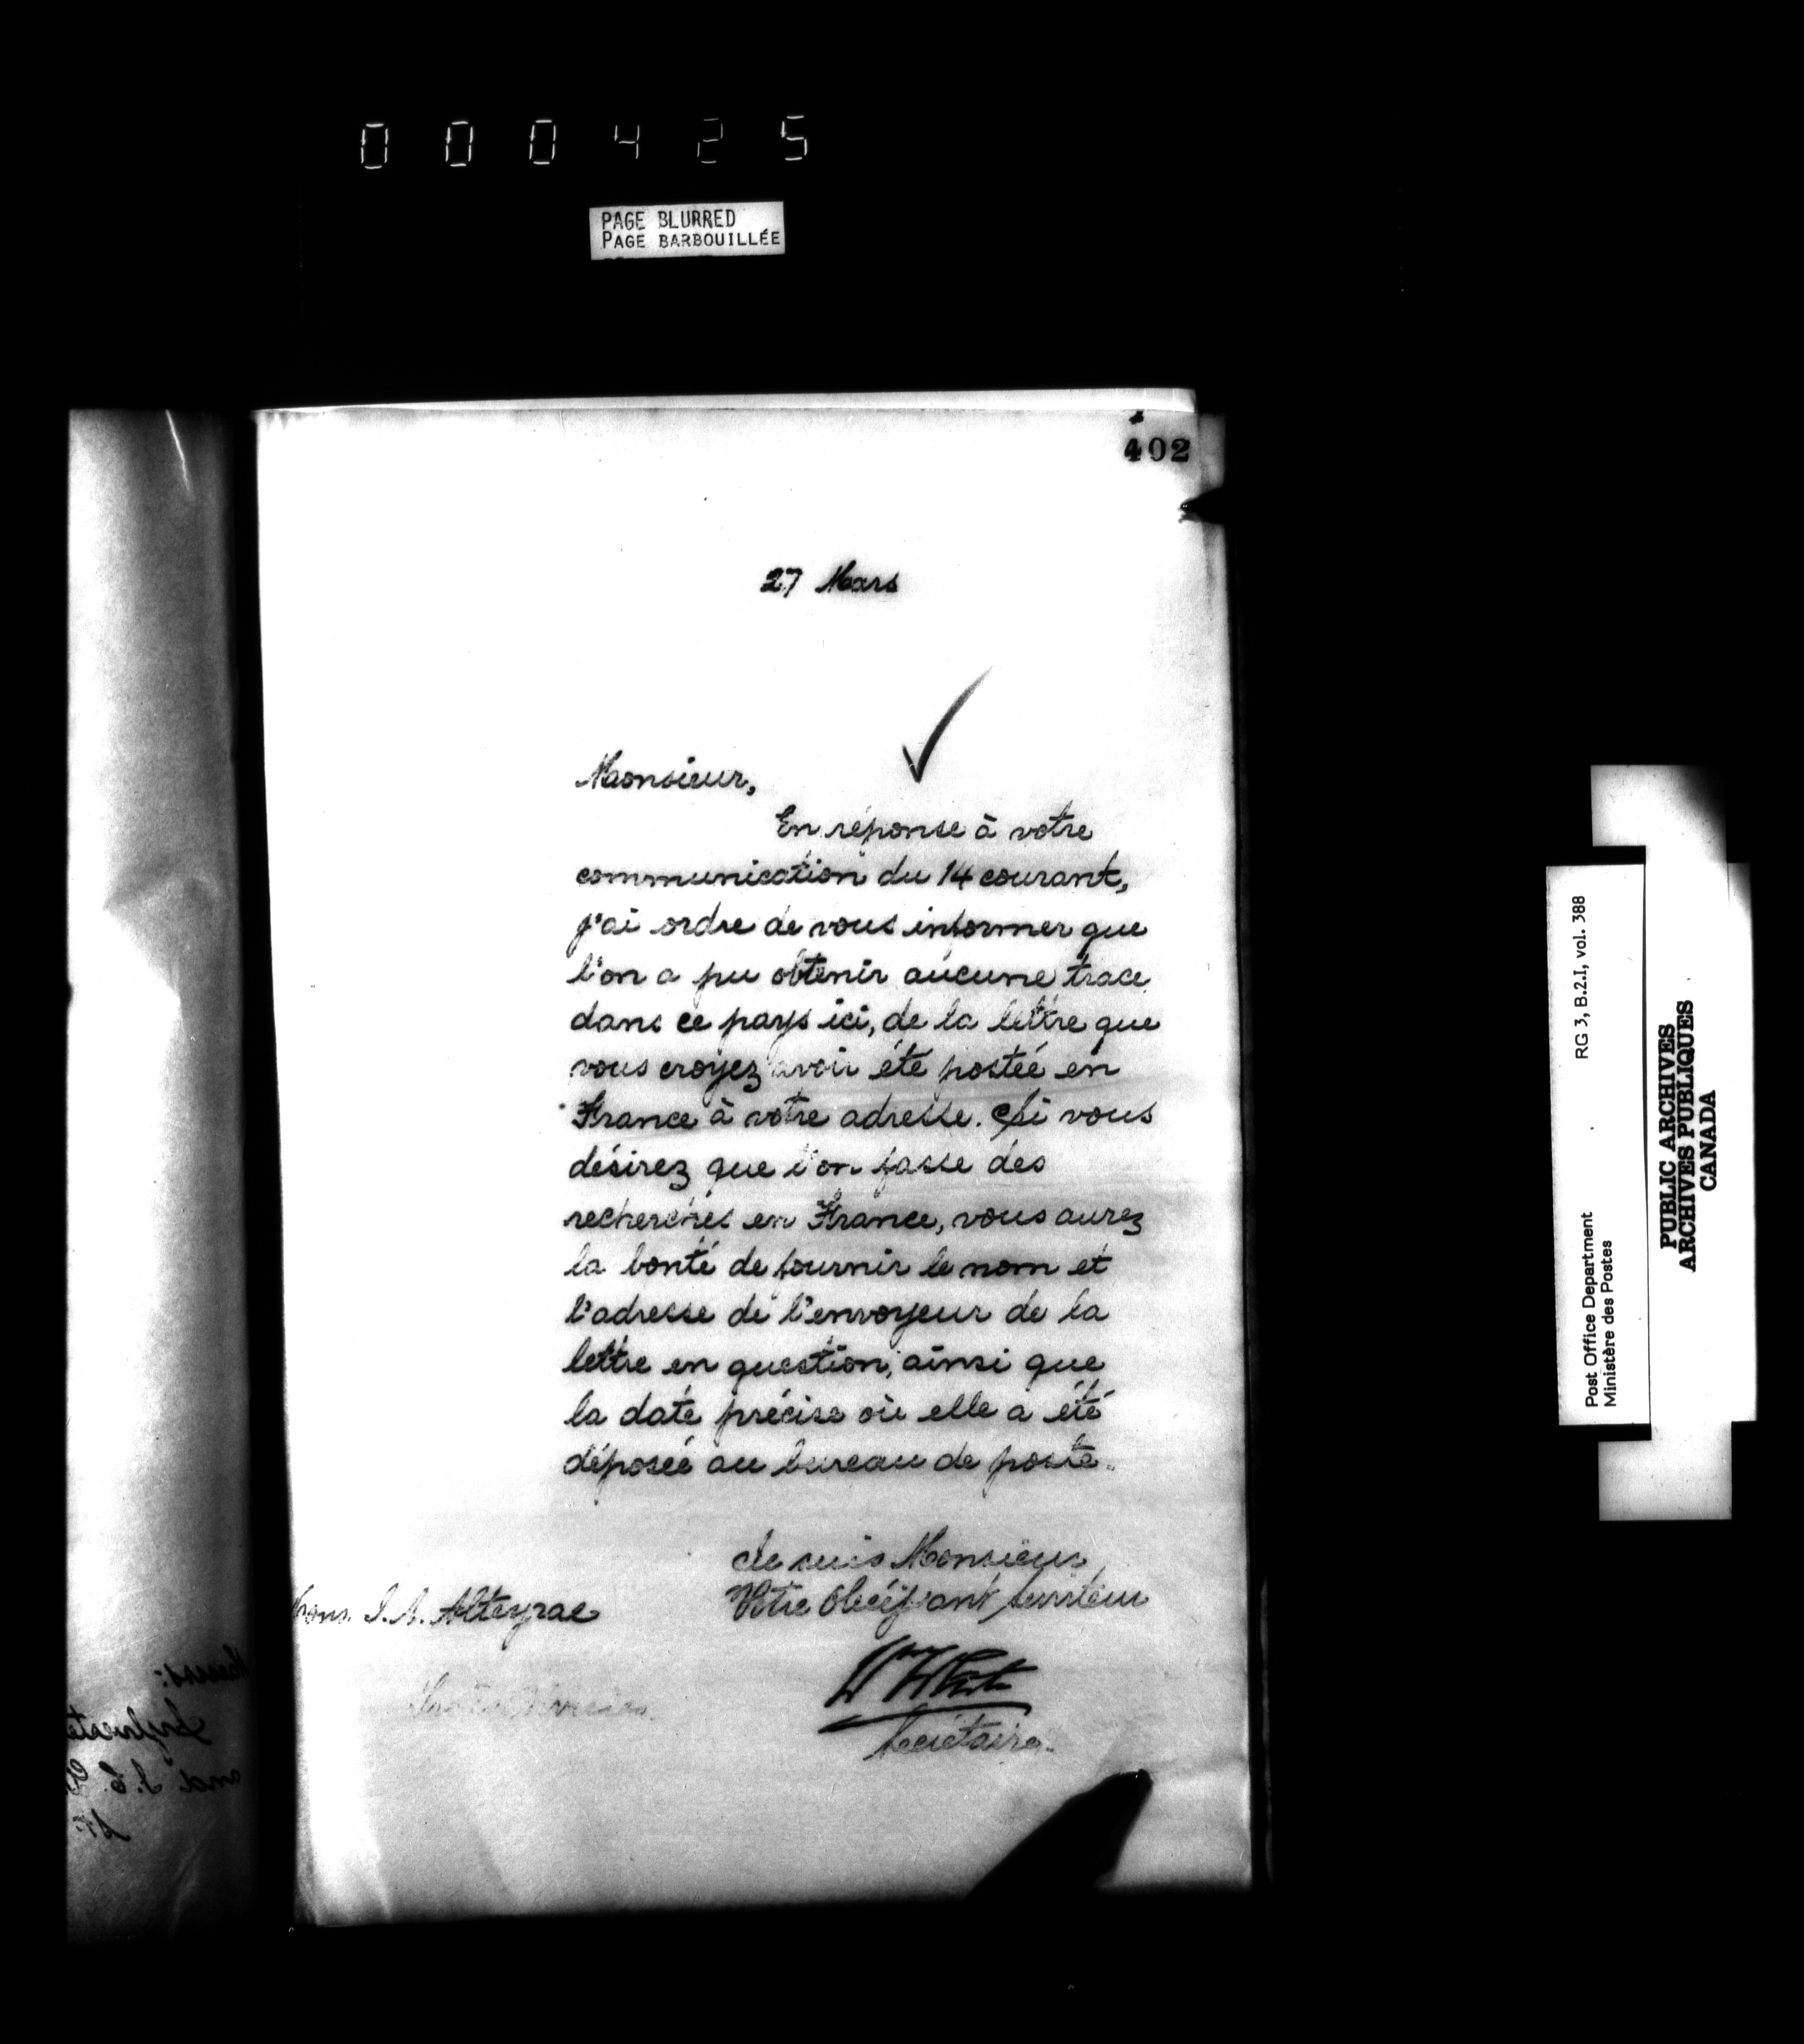 000425
PAGE BLURRED
PAGE BARBOUILLÉE
402
27 Mars
Monsieur,
En réponse à votre
communication du 14 courant,
j'ai ordre de vous informer que
l'on a pu obtenir aucune trace
dans ce pays ici, de la lettre que
vous croyez avoir été postée en
France à votre adresse. Si vous
désirez que l'on fasse des
recherches en France, vous aurez
la bonté de fournir le nom et
l'adresse de l'envoyeur de la
lettre en question, ainsi que
la date précise où elle a été
déposée au bureau de poste.
Je suis Monsieur
Votre obéissant serviteur
Mons. J. A. Alteyrac
Secrétaire.
RG 3, B.2.I, vol. 388
Post Office Department
Ministère des Postes
PUBLIC ARCHIVES
ARCHIVES PUBLIQUES
CANADA